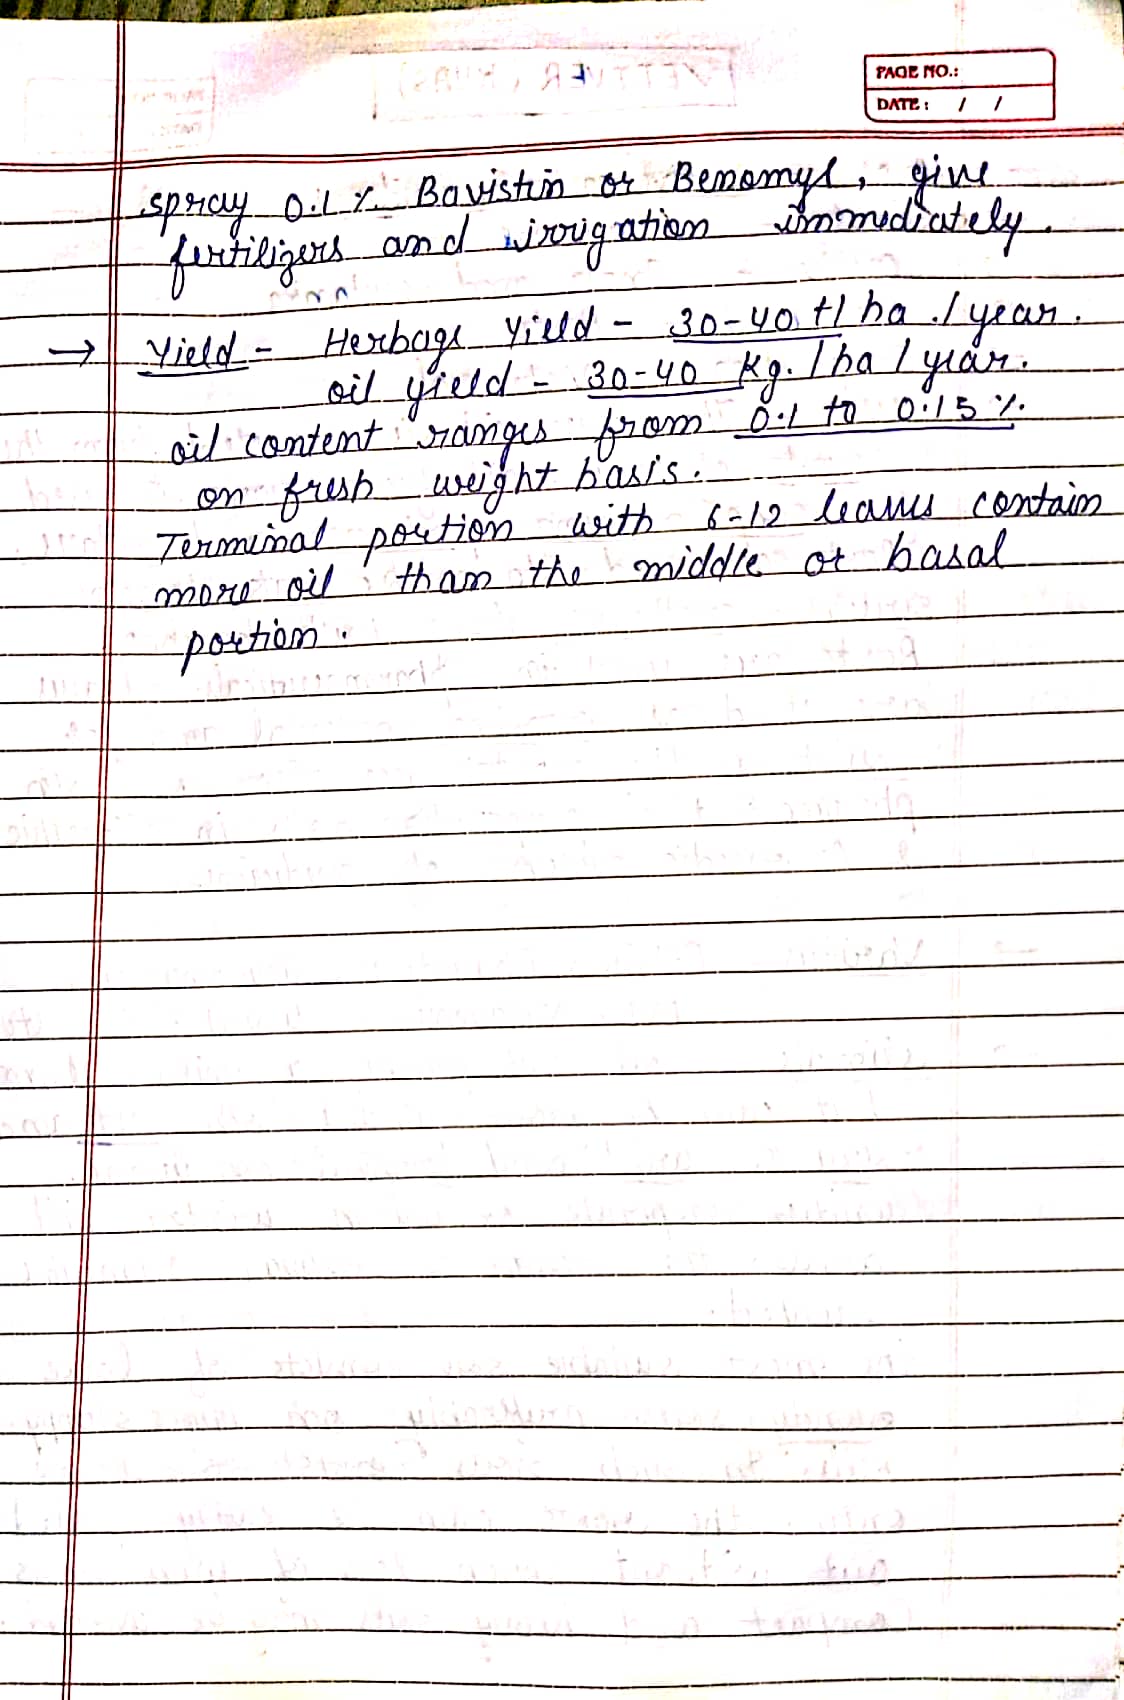 PAGE NO.:
DATE: / /
spray 0.1 % Bavistin or Benomyl, give
fertilizers and irrigation immediately.
→ Yield - Herbage Yield - 30-40 t/ha./year.
oil yield - 30-40 kg./ha/year.
oil content ranges from 0.1 to 0.15 %.
on fresh weight basis.
Terminal portion with 6-12 leaves contain
more oil than the middle or basal
portion.